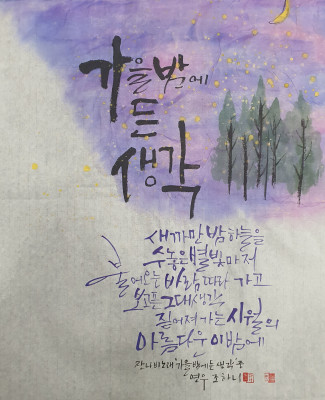 가을밤에
든
생각
새까만 밤하늘을
수놓은 별빛마저
불어오는 바람따라 가고
보고픈 그대 생각
짙어져 가는 시월의
아름다운 이 밤에
잔나비 노래 가을밤에 든 생각 중